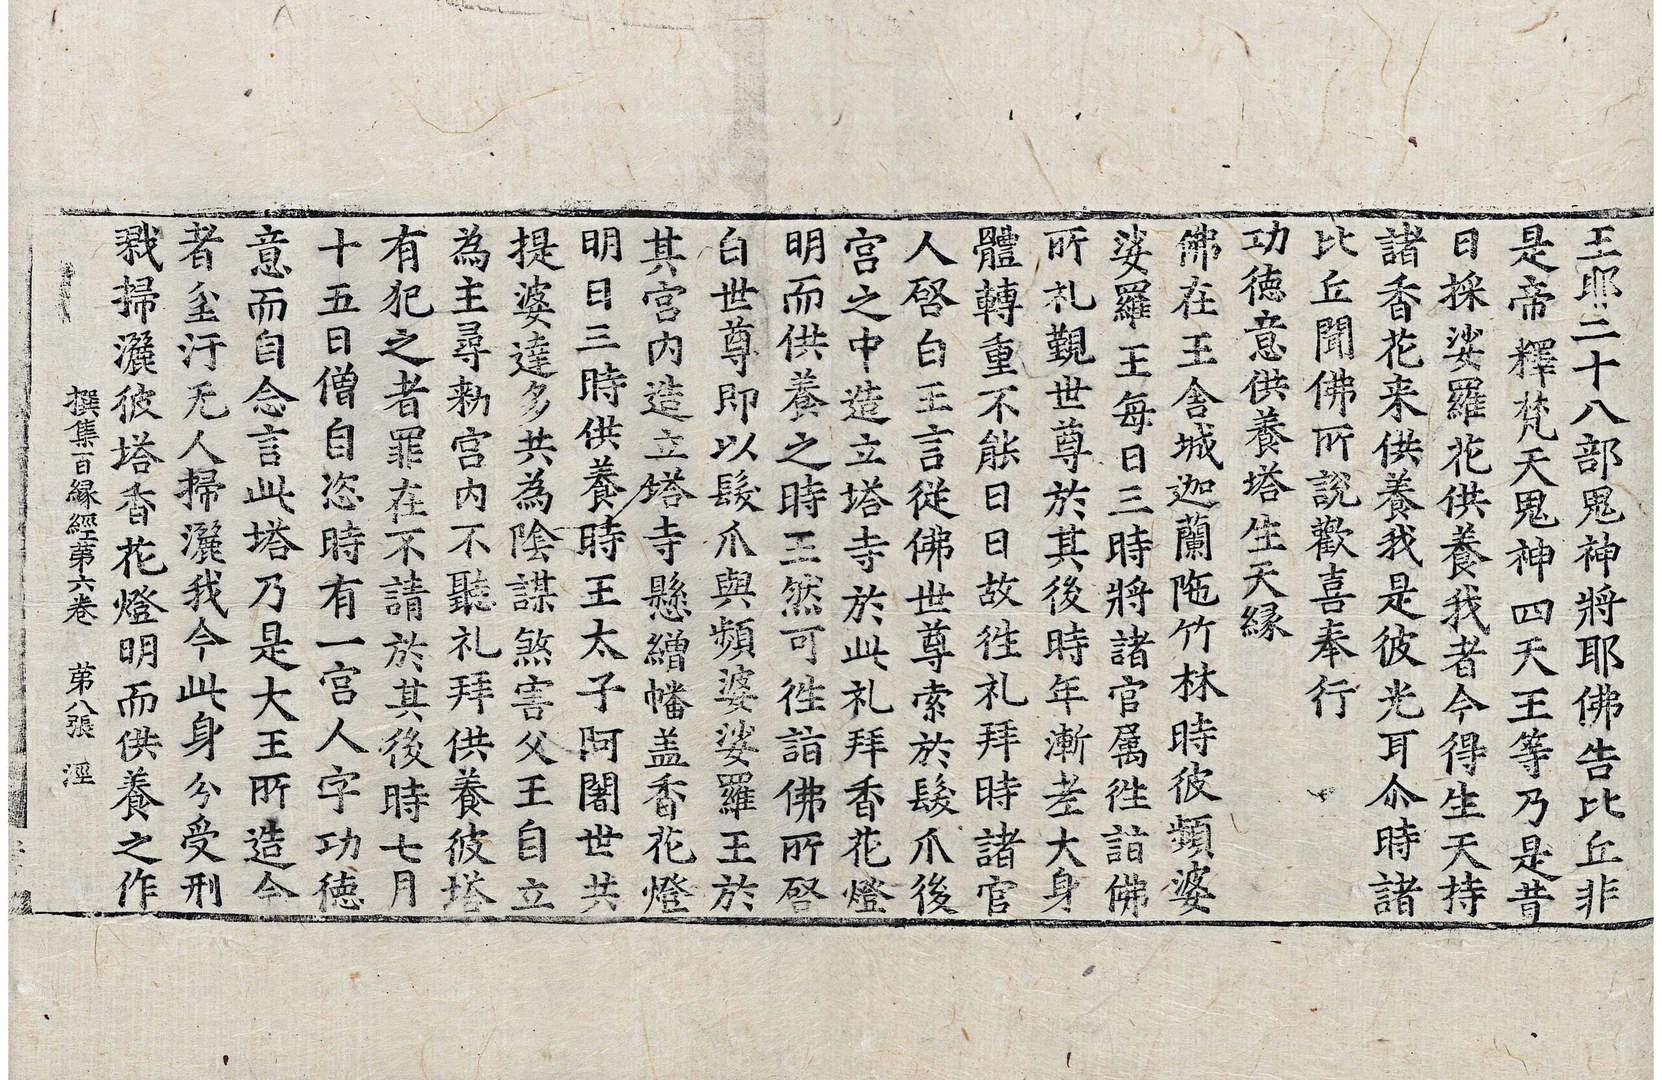 王耶二十八部鬼神將耶佛告比丘非
是帝釋梵天鬼神四天王等乃是昔
日採娑羅花供養我者今得生天持
諸香花来供養我是彼光耳尒時諸
比丘聞佛所說歡喜奉行
功徳意供養塔生天縁
佛在王舍城迦蘭陁竹林時彼頻婆
娑羅王每日三時將諸官属徃詣佛
所礼覲世尊於其後時年漸老大身
體轉重不能日日故徃礼拜時諸官
人啓白王言從佛世尊索於髮爪後
宮之中造立塔寺於此礼拜香花燈
明而供養之時王然可徃詣佛所啓
白世尊即以髮爪與頻婆娑羅王於
其宮内造立塔寺懸繒幡盖香花燈
明日三時供養時王太子阿闍世共
提婆達多共為陰謀煞害父王自立
為主尋勑宮内不聽礼拜供養彼塔
有犯之者罪在不請於其後時七月
十五日僧自恣時有一宮人字功徳
意而自念言此塔乃是大王所造今
者坌汙无人掃灑我今此身分受刑
戮掃灑彼塔香花燈明而供養之作
撰集百縁經第六卷 第八張 淫